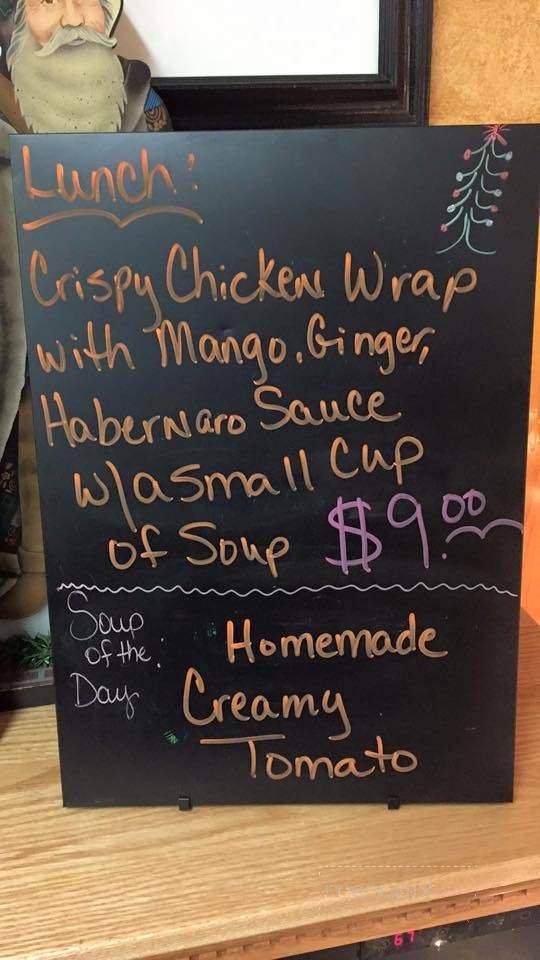 Lunch:
Crispy Chicken Wrap
with Mango, Ginger,
Habernaro Sauce
w/a Small Cup
of Soup $9.00
Soup
of the:
Day
Homemade
Creamy
Tomato
67